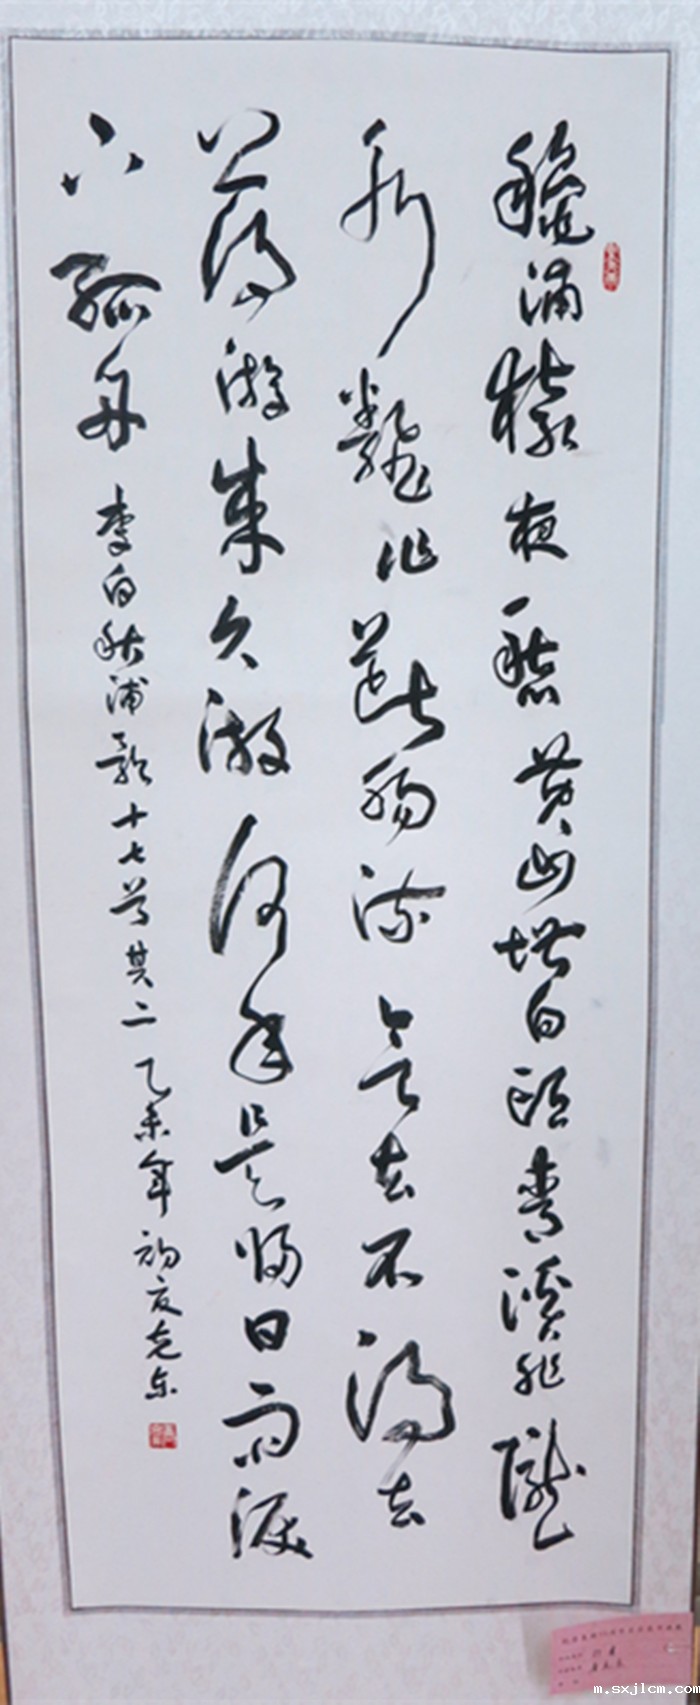 龝浦猿夜愁黄山堪白頭青溪非隴
水飜作斷腸流欲去不得去
薄游成久游何年是歸日雨淚
下孤舟 李白秋浦歌十七首其二 乙未年初夏
m.sxjlcm.com